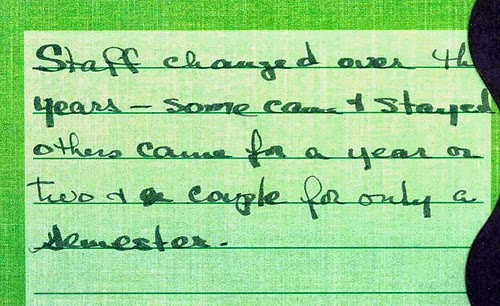 Staff changed over th
years - some came & stayed
others came for a year or
two & a couple for only a
semester.